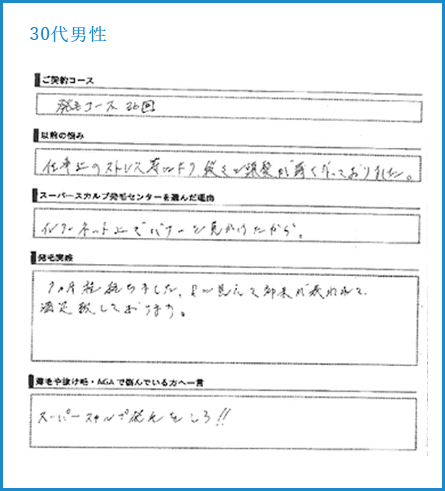 30代男性
ご契約コース
発毛コース 36回
以前の悩み
仕事上のストレス等により、徐々に頭髪が薄くなっておりました。
スーパースカルプ発毛センターを選んだ理由
インターネット上でバナーを見かけたから。
発毛実感
7ヵ月程経ちました、目に見えて効果が表れて、
満足致しております。
薄毛や抜け毛・AGAで悩んでいる方へ一言
スーパースカルプで発毛をしろ!!